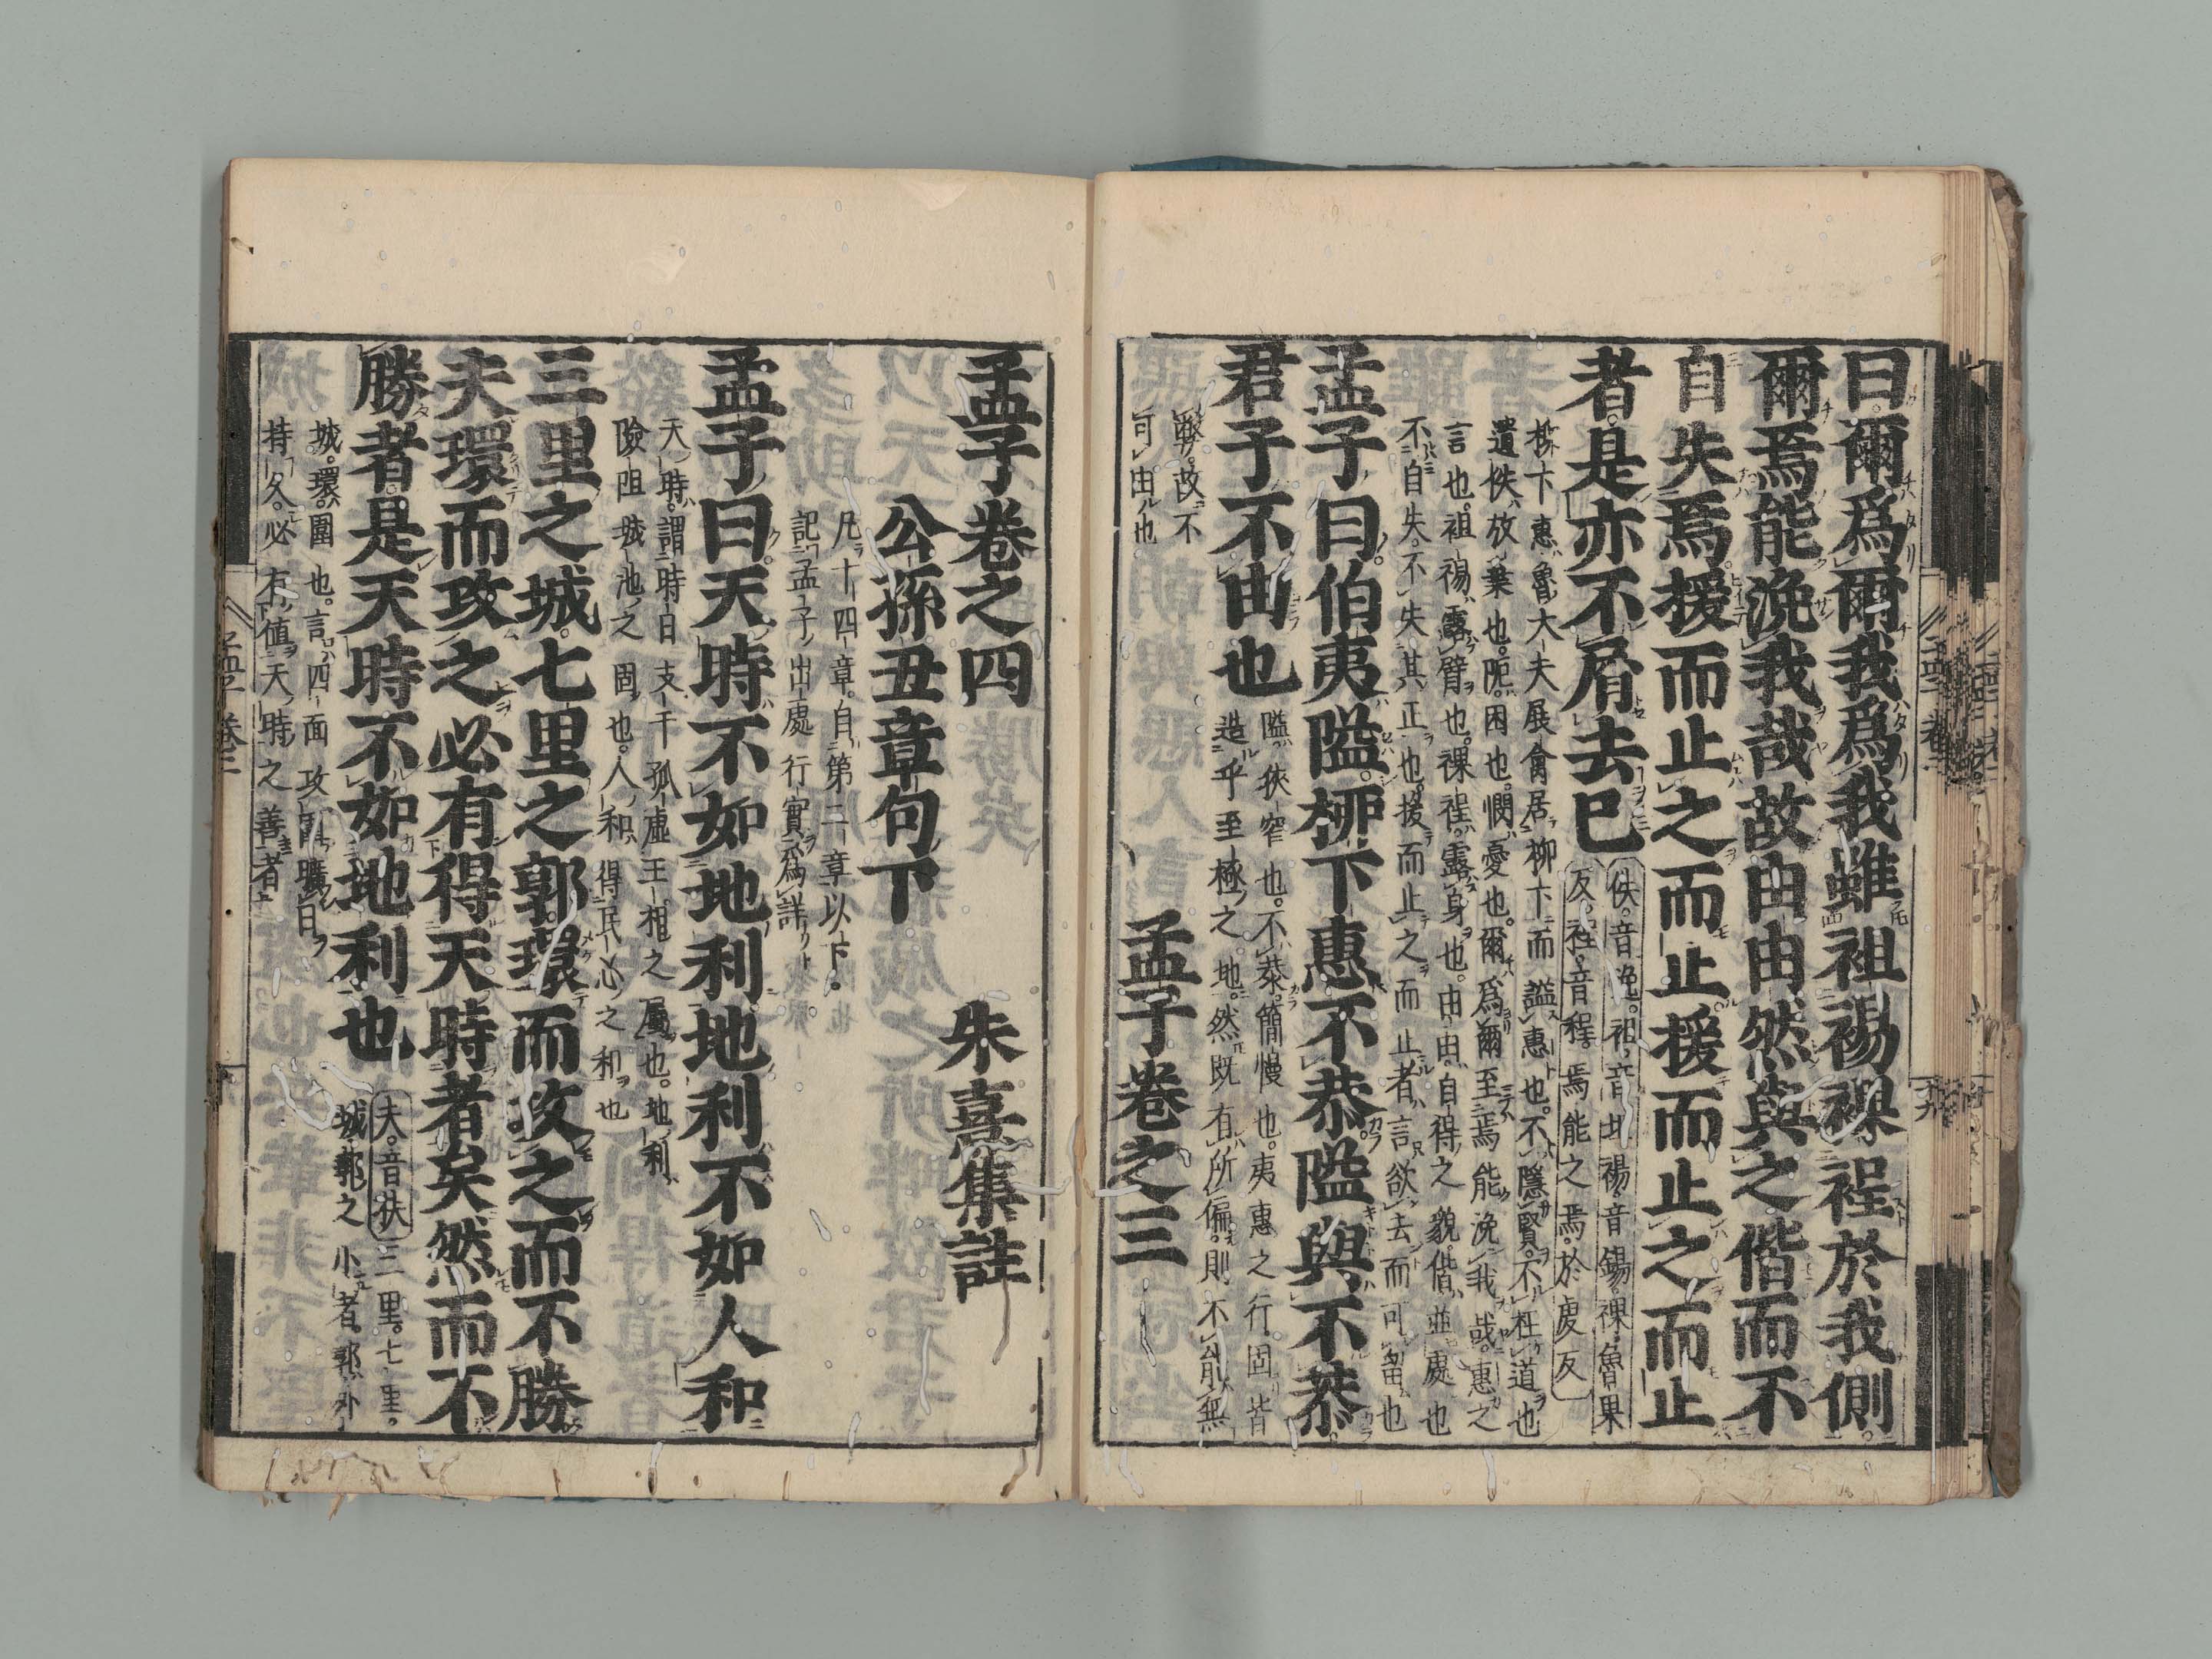 曰爾爲爾我爲我雖袒裼裸裎於我側
爾焉能浼我哉故由由然與之偕而不
自失焉援而止之而止援而止之而止
者是亦不屑去已
佚音逸袒音但裼音錫裸魯果
反裎音程焉能之焉於虔反
柳下惠魯大夫展禽居柳下而謚惠也不隱賢不枉道也
遺佚放棄也阨困也憫憂也爾爲爾至焉能浼我哉惠之
言也袒裼露臂也裸裎露身也由由自得之貌偕並處也
不自失不失其正也援而止之而止者言欲去而可留也
孟子曰伯夷隘柳下惠不恭隘與不恭
君子不由也
隘狹窄也不恭簡慢也夷惠之行固皆
造乎至極之地然既有所偏則不能無
弊故不
可由也
孟子卷之三
孟子卷之四
朱熹集註
公孫丑章句下
凡十四章自第二章以下
記孟子出處行實爲詳
孟子曰天時不如地利地利不如人和
天時謂時日支干孤虛王相之屬也地利
險阻城池之固也人和得民心之和也
三里之城七里之郭環而攻之而不勝
夫環而攻之必有得天時者矣然而不
勝者是天時不如地利也
夫音扶三里七里
城郭之小者郭外
城環圍也言四面攻圍曠日
持久必有値天時之善者
孟子 卷三
十九